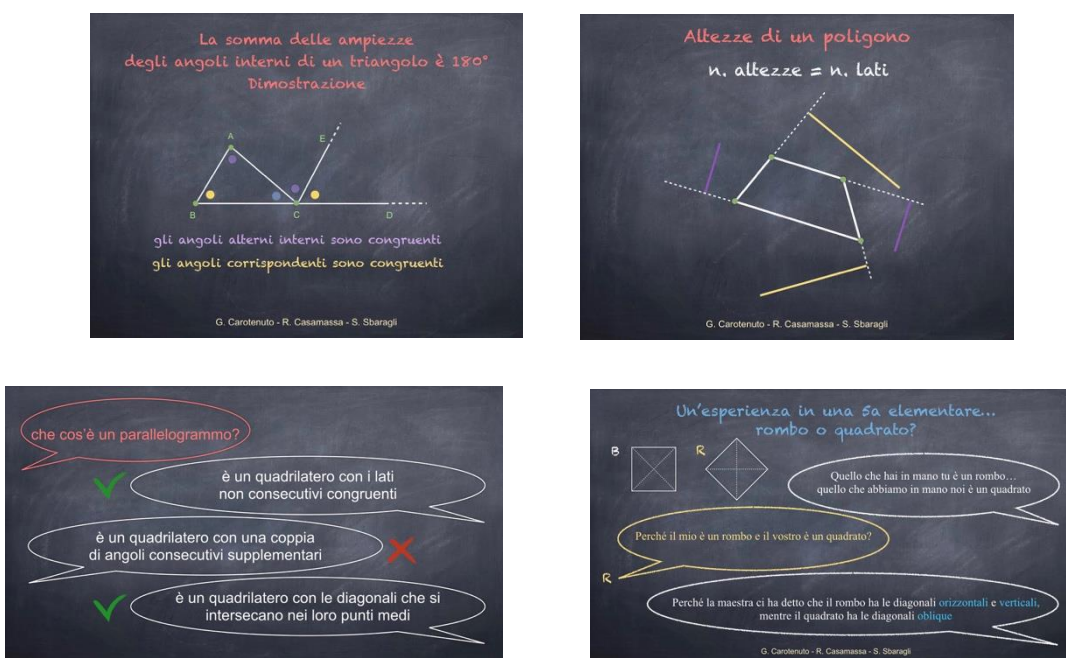 La somma delle ampiezze
degli angoli interni di un triangolo è 180°
Dimostrazione
A
E
B
C
D
gli angoli alterni interni sono congruenti
gli angoli corrispondenti sono congruenti
G. Carotenuto - R. Casamassa - S. Sbaragli
Altezze di un poligono
n. altezze = n. lati
G. Carotenuto - R. Casamassa - S. Sbaragli
che cos'è un parallelogrammo?
è un quadrilatero con i lati
non consecutivi congruenti
è un quadrilatero con una coppia
di angoli consecutivi supplementari
è un quadrilatero con le diagonali che si
intersecano nei loro punti medi
Un'esperienza in una 5a elementare...
rombo o quadrato?
B
R
Quello che hai in mano tu è un rombo…
quello che abbiamo in mano noi è un quadrato
Perché il mio è un rombo e il vostro è un quadrato?
R
Perché la maestra ci ha detto che il rombo ha le diagonali orizzontali e verticali,
mentre il quadrato ha le diagonali oblique
G. Carotenuto - R. Casamassa - S. Sbaragli